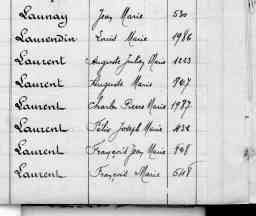 Launay Jean Marie 530
Laurendin Louis Marie 1986
Laurent Auguste Julien Marie 1023
Laurent Auguste Marie 847
Laurent Charles Pierre Marie 1977
Laurent Félix Joseph Marie 432
Laurent François Jean Marie 898
Laurent François Marie